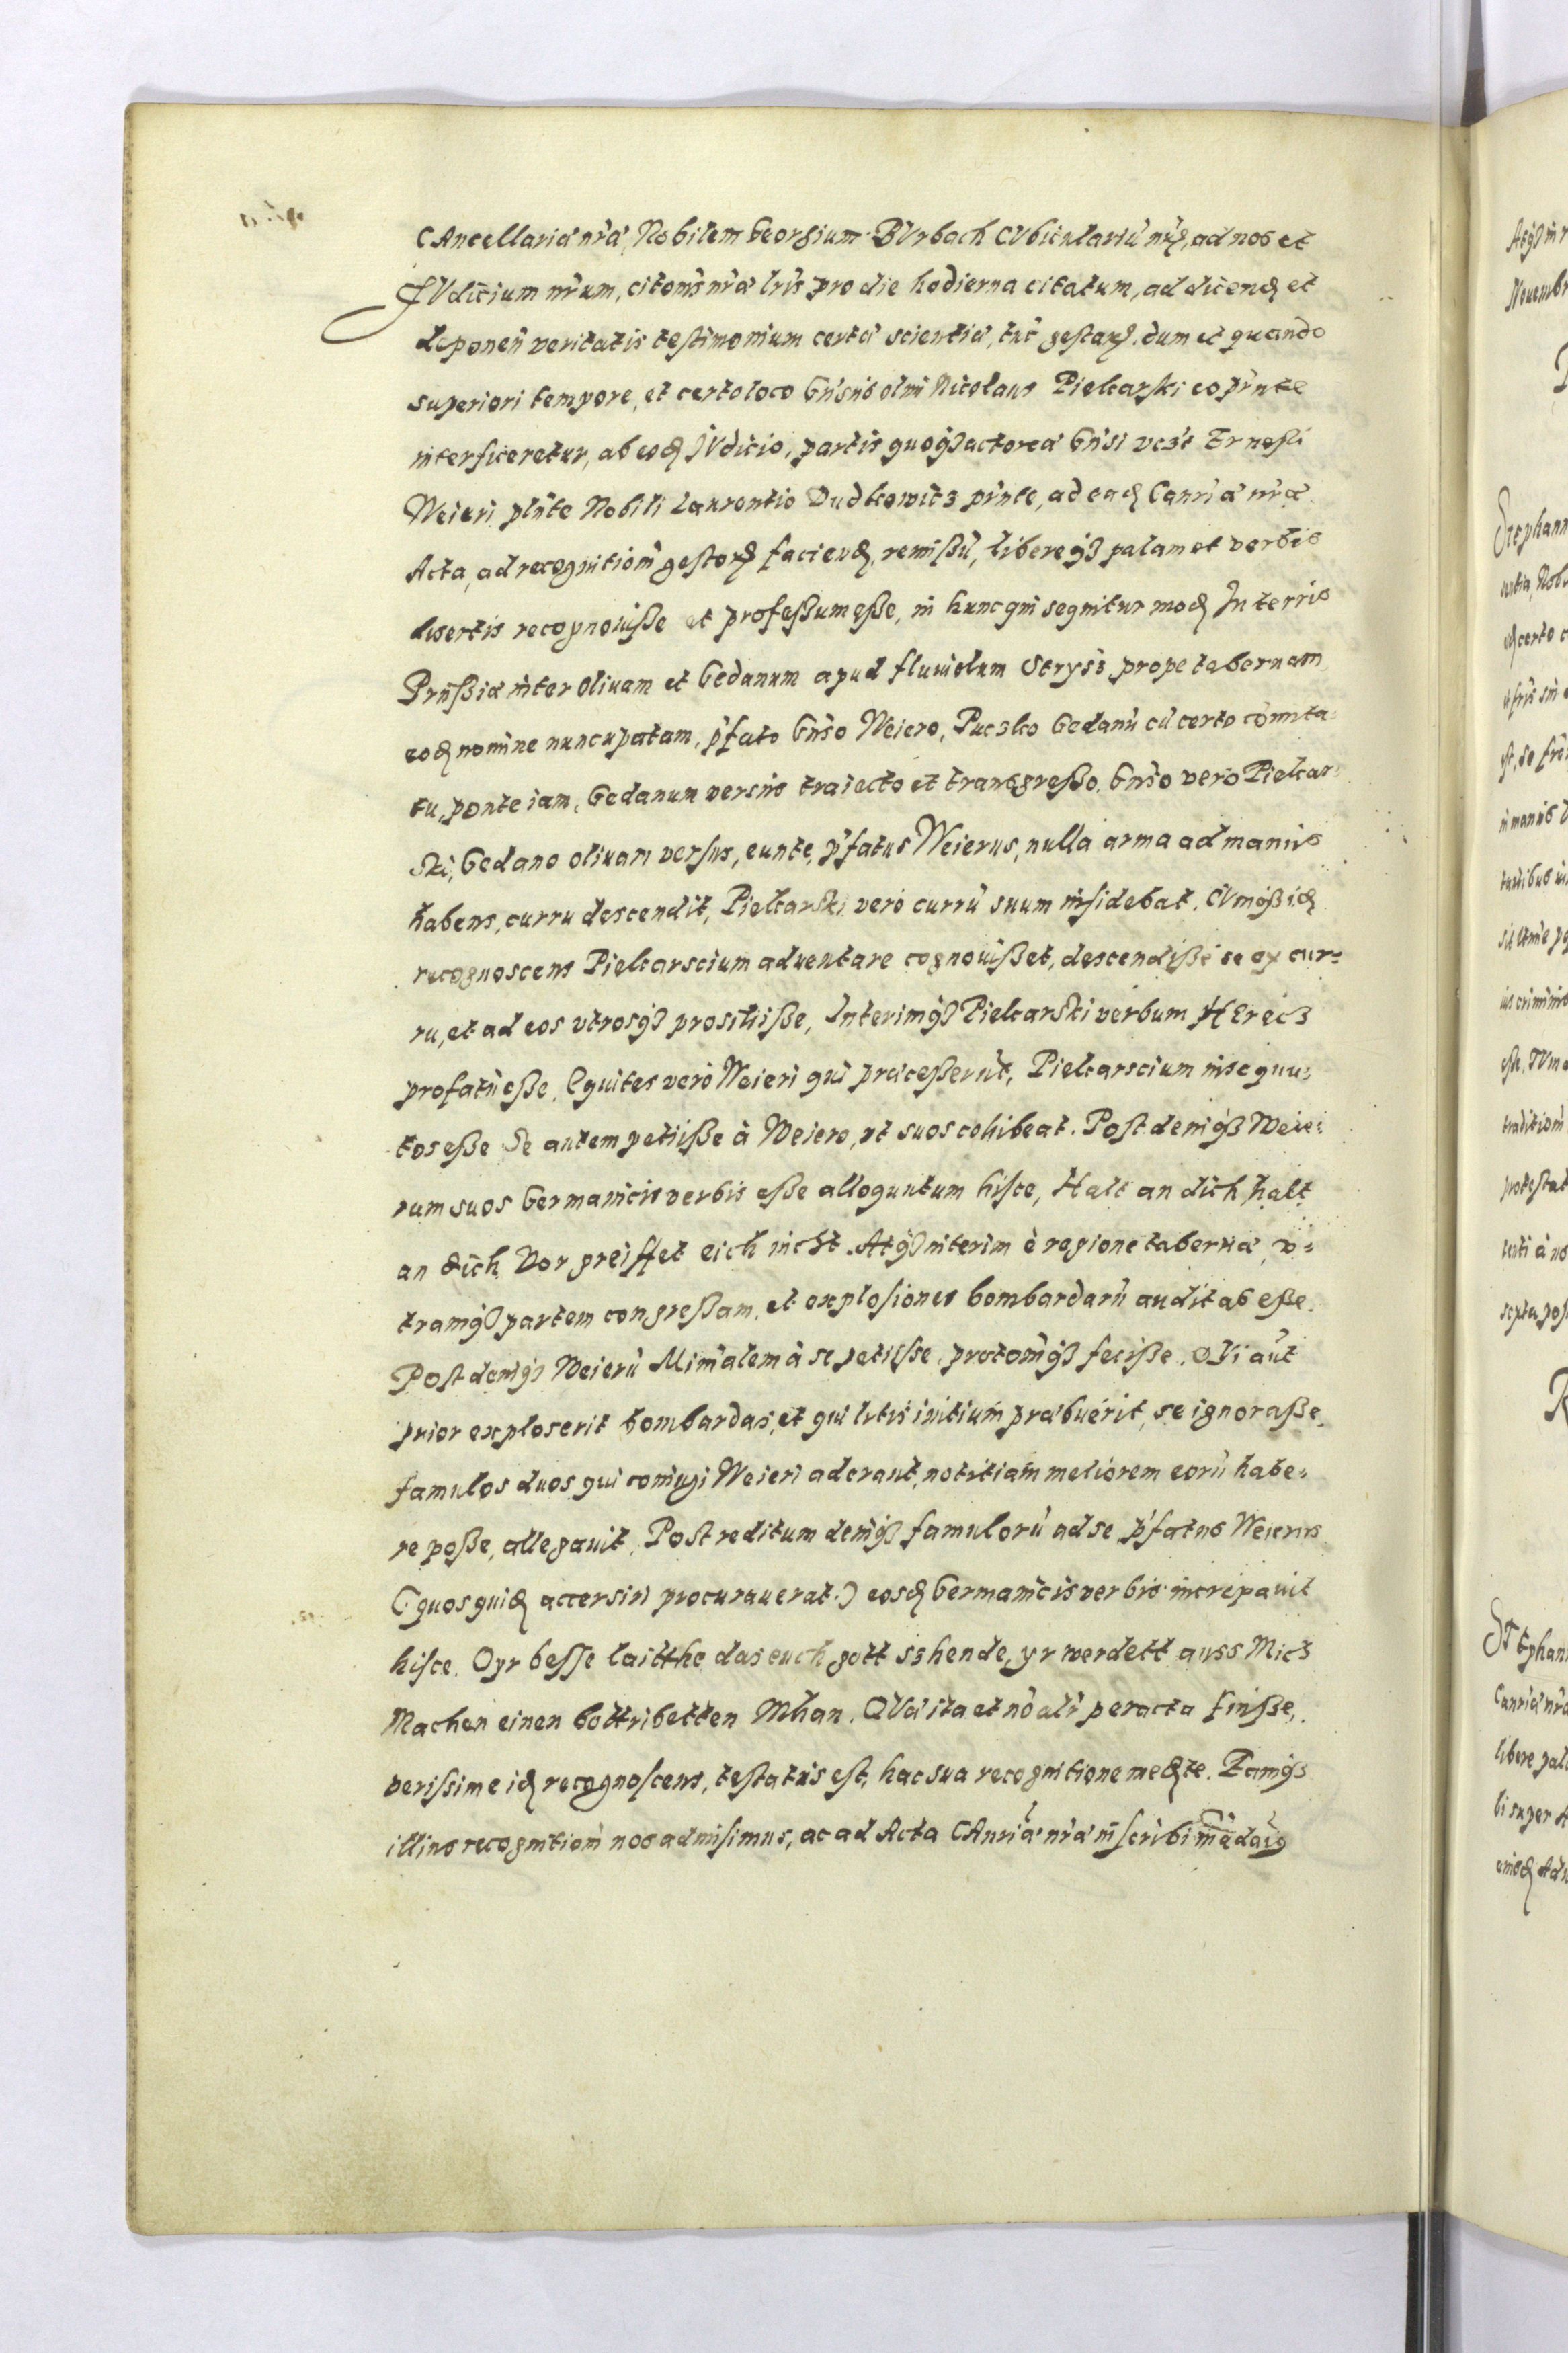 CAncellariæ nr̃æ, Nobilem Georgium BUrbach CUbiculariũ nr̃ꝫ, ad nos et
IUdicium nr̃um, citonis nr̃æ lr̃is pro die hodierna citatum, ad dicenꝫ et
deponeñ veritatis testimonium certæ scientiæ, tũc gestarꝫ. dum et quando
superiori tempore, et certo loco Gn̄sus olim Nicolaus Pielcarski eo pr̃nte
interficeretur, ab eoꝫ IUdicio, partis quoqꝫ actoreæ Gn̄si vczt Ernesti
Weieri plñte Nobili Laurentio Dudkowicz pr̃nte, ad eaꝫ Canr̃iæ nr̃æ
Acta, ad recognitiõm gestorꝫ facienꝫ, remißũ, libereqꝫ palam et verbis
disertis recognouiße et profeßum eße, in hunc qui sequitur moꝫ In terris
Prußiæ inter Oliuam et Gedanum apud fluuiolum Strysz prope tabernam
eoꝫ nomine nuncupatam, p̃fato Gn̄so Weiero, Puczko Gedanũ cũ certo comita=
tu, ponte iam, Gedanum versus traiecto et transgreßo. Gn̄so vero Pielcar=
ski, Gedano Oliuam versus, eunte, p̃fatus Weierus, nulla arma ad manus
habens, curru descendit, Pielcarski vero currũ suum insidebat. CUmqꝫ iꝫ
recognoscens Pielcarscium aduentare cognouißet, descendiße se ex cur=
ru, et ad eos vtrosqꝫ prosiliiße, Interimqꝫ Pielcarski verbum HErecz
profatũ eße. Equites vero Weieri qui præceßerũt, Pielcarscium insequu=
tos eße Se autem petiiße à Weiero, vt suos cohibeat. Post demqꝫ Weie=
rum suos Germanicis verbis eße alloquutum hisce, Halt an dich, halt
an dich Vorgreiffet eich nicht. Atqꝫ interim è regione tabernæ, v=
tramqꝫ partem congreßam, et explosiones bombardarũ auditas eße.
Post demqꝫ Weierũ à se petiisse, feciße. QVi aũt
prior exploserit bombardas, et qui litis initium præbuerit, se ignoraße.
Famulos duos qui coniugi Weieri aderant, notitiam meliorem eorũ habe=
re poße, allegauit. Post reditum demqꝫ famulorũ ad se p̃fatus Weierus
(quos quiꝫ accersiri procurauerat.) eosꝫ Germanicis verbis increpauit
hisce. O yr beße laitthe das euch gott sshende, yr werdett auss Micz
Machen einen bottribetten Mhan. QUæ ita et nõ alr̃ peracta fuiße,
verissime iꝫ recognoscens, testatus est, hac sua recognitione meꝫte.
illius recognitiõm nos admisimus, ac ad Acta CAnr̃iæ nr̃æ inscribi mãdauimꝰ